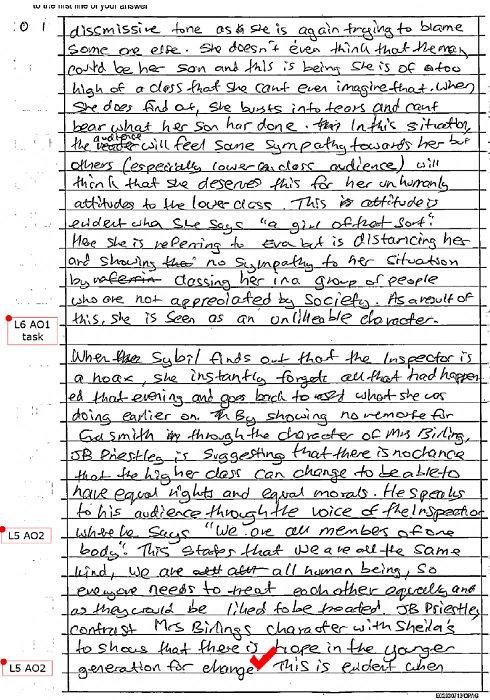 to the first line of your answer
0 1
dissmissive tone as she is again trying to blame
some one else. She doesn't even think that the man
could be her son and this is being she is of a too
high of a class that she cant even imagine that. When
she does find out, she bursts into tears and cant
bear what her son har done. In this situation,
the audience will feel some sympathy towards her but
others (especially lower class audience) will
think that she deserves this for her unhumanly
attitudes to the lower class. This attitude is
evident when she says "a girl of that sort".
Here she is referring to Eva but is distancing her
and showing no sympathy to her situation
by classing her in a group of people
who are not appreciated by society. As a result of
this, she is seen as an unlikeable character.
L6 AO1
task
When Sybil finds out that the Inspector is
a hoax, she instantly forgets all that had happen
ed that evening and goes back to what she was
doing earlier on. By showing no remorse for
Eva smith through the character of Mrs Birling,
JB Priestley is suggesting that there is no chance
that the higher class can change to be able to
have equal rights and equal morals. He speaks
to his audience through the voice of the Inspector
L5 AO2
where he says "We are all members of one
body". This states that we are all the same
kind, we are all human being, so
everyone needs to treat each other equally and
as they would be liked to be treated. JB Priestley
contrast Mrs Birlings character with Sheila's
to shows that there is hope in the younger
L5 AO2
generation for change. This is evident when